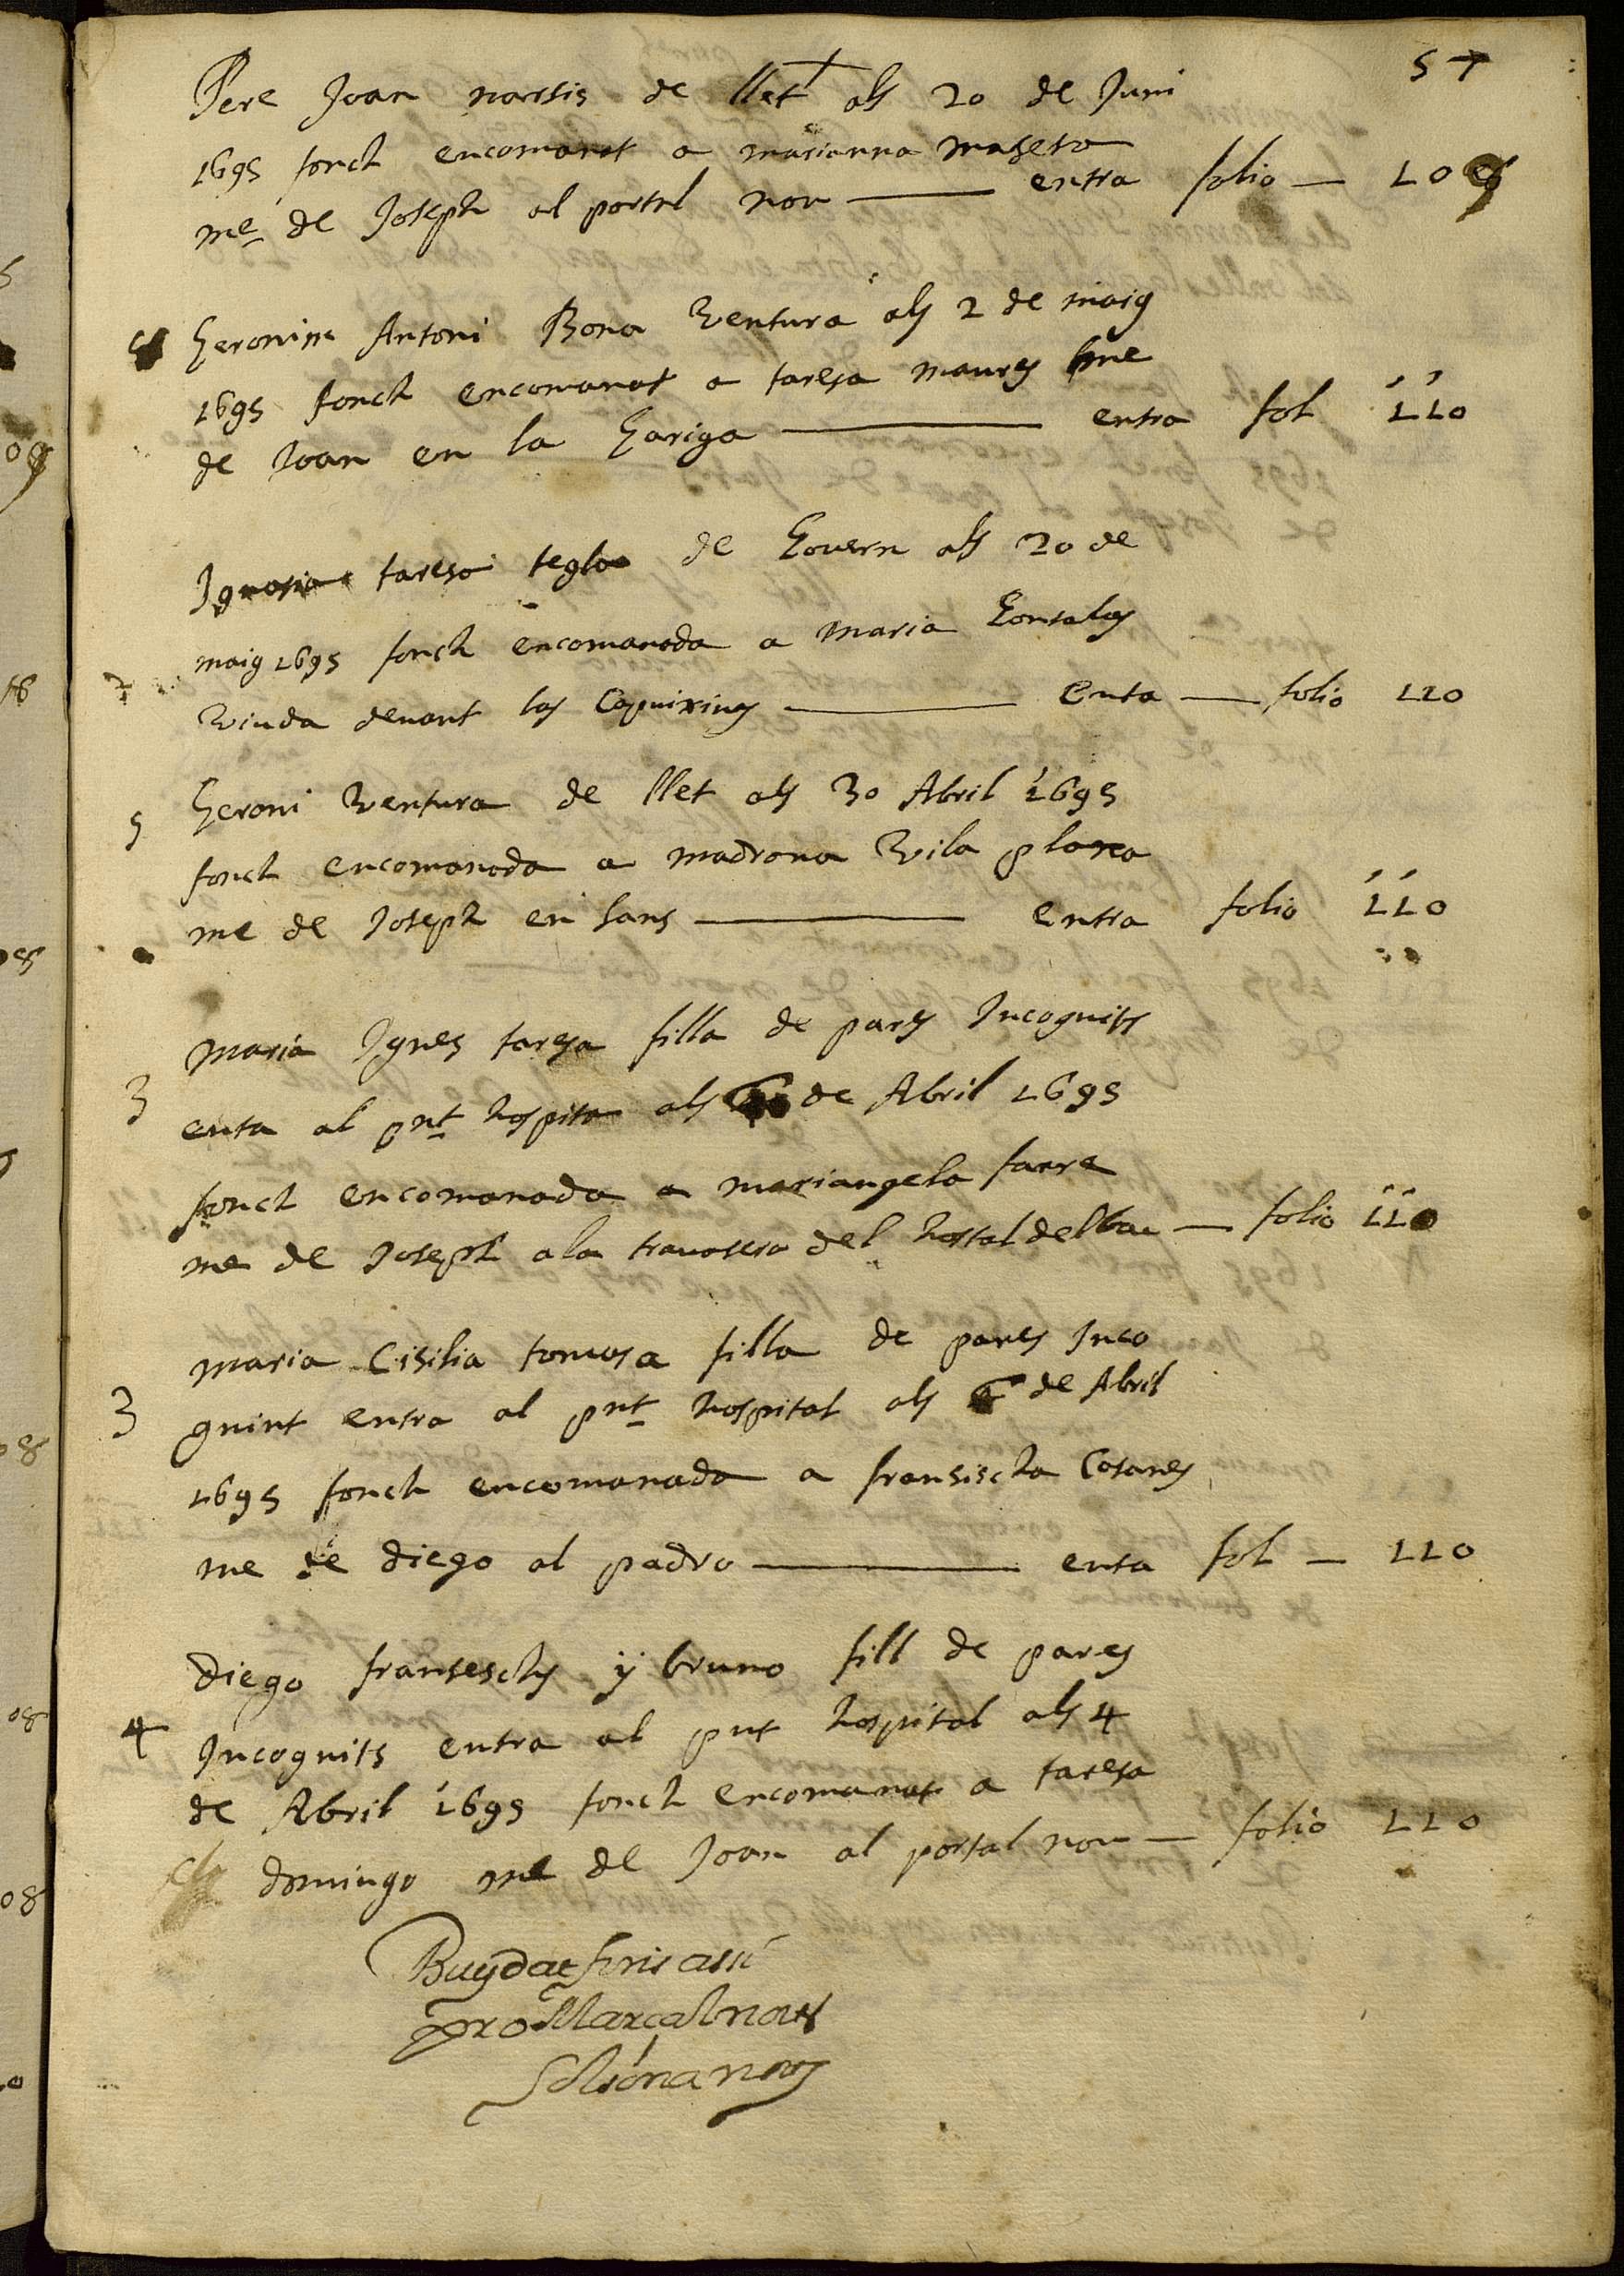 57
Pere Joan narsis de llet als 20 de Juni
1695 fonch encomanat a marianna masera
me de Joseph al portal nou — entra folio — 109
Geronim Antoni Bona Ventura als 2 de maig
1695 fonch encomanat a taresa maures me
de Joan en la Gariga — entra fol 110
Ignasia taresa tegla de Govern als 20 de
maig 1695 fonch encomanada a Maria Gonsalas
7
Viuda devant los Capuxins — enta — folio 110
Geroni Ventura de llet als 30 Abril 1695
5
fonch encomanada a madrona Vila plana
me de Joseph en sans — entra folio 110
maria Ignes taresa filla de pares Incognits
3
enta al pnt hospita als 6 de Abril 1695
fonch encomanada a mariangela farre
me de Joseph a la travasera del hostal del bou — folio 110
maria Cisilia tomasa filla de pares Inco
3
gnint entra al pnt hospital als 6 de Abril
1695 fonch encomanada a fransischa Casares
me de diego al padro — enta fol — 110
Diego fransesch y bruno fill de pares
4
Incognits entra al pnt hospital als 4
de Abril 1695 fonch encomanat a taresa
domingo me de Joan al portal nou — folio 110